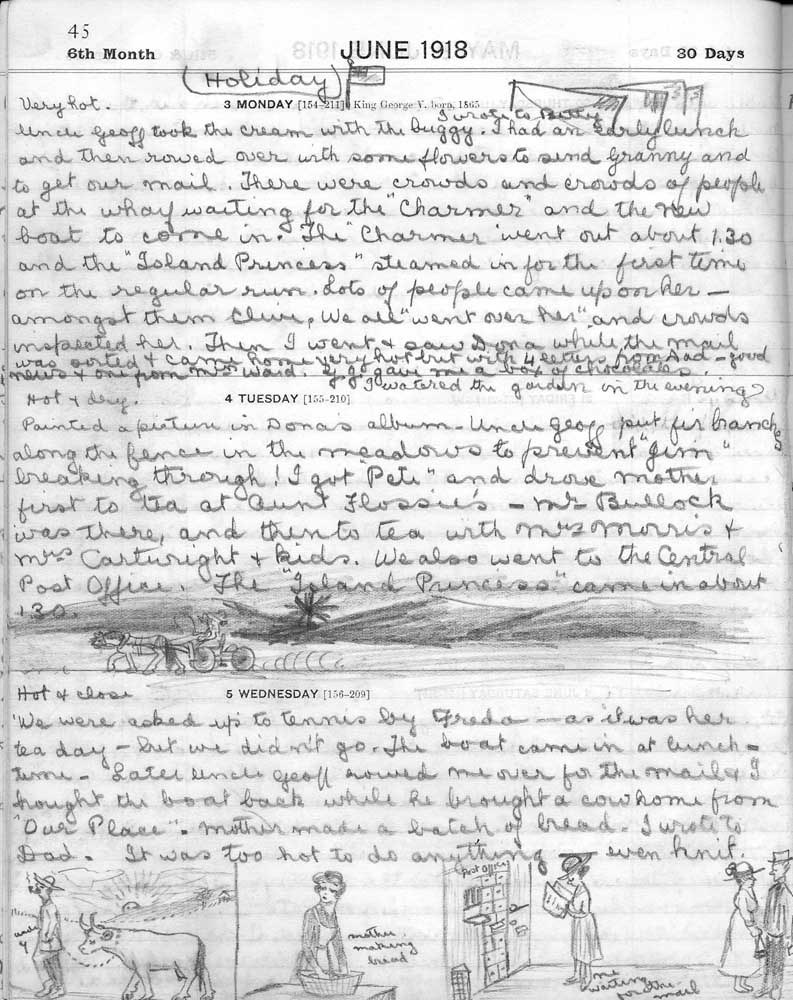 45
6th Month JUNE 1918 30 Days
(Holiday)
Very hot. 3 MONDAY [154-211] King George V. born, 1865
I wrote to Betty
Uncle Geoff took the cream with the buggy. I had an early lunch
and then rowed over with some flowers to send Granny and
to get our mail. There were crowds and crowds of people
at the wharf waiting for the "Charmer" and the new
boat to come in. The "Charmer" went out about 1.30
and the "Island Princess" steamed in for the first time
on the regular run. Lots of people came up on her –
amongst them Clive. We all "went over her" and crowds
inspected her. Then I went & saw Dona while the mail
was sorted & came home very hot but with 4 letters from Dad – good
news & one from Mrs Ward. gave me a box of chocolates.
I watered the garden in the evening
Hot & dry. 4 TUESDAY [155-210]
Painted a picture in Dona's album – Uncle Geoff put fir branches
along the fence in the meadows to prevent "Jim"
breaking through! I got "Pete" and drove mother
first to tea at Aunt Flossie's – Mr Bullock
was there, and then to tea with Mrs Morris &
Mrs Cartwright & kids. We also went to the Central
Post Office. The "Island Princess" came in about
1.30.
Hot & close 5 WEDNESDAY [156-209]
We were asked up to tennis by Freda – as it was her
tea day – but we didn't go. The boat came in at lunch-
time – Later Uncle Geoff rowed me over for the mail & I
brought the boat back while he brought a cow home from
"Our Place". Mother made a batch of bread. I wrote to
Dad. It was too hot to do anything – even knit.
Post Office
mother
making
bread
me
waiting
for the
mail